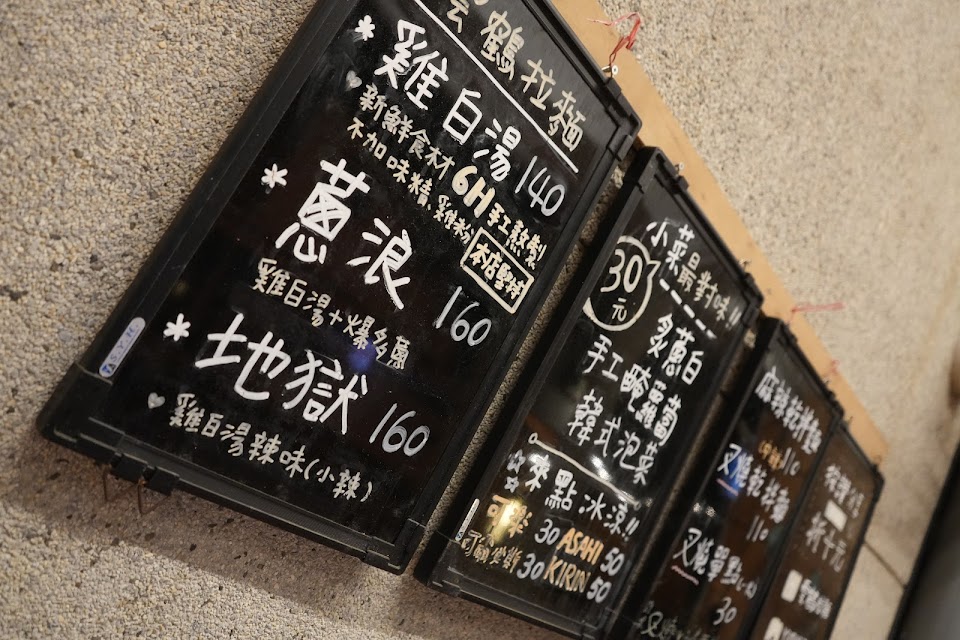 鶴拉麵
*雞白湯 140
新鮮食材 6H 手工熬製
不加味精,雞粉 本店堅持
*蔥浪 160
雞白湯+爆多蔥
*地獄 160
雞白湯辣味(小辣)
小菜最對味!!
30元
炙蔥白
手工醃蘿蔔
韓式泡菜
來點冰涼!!
可樂 30 ASAHI 50
30 KIRIN 50
麻辣乾拌麵
110
叉燒乾拌麵
110
叉燒單點
30